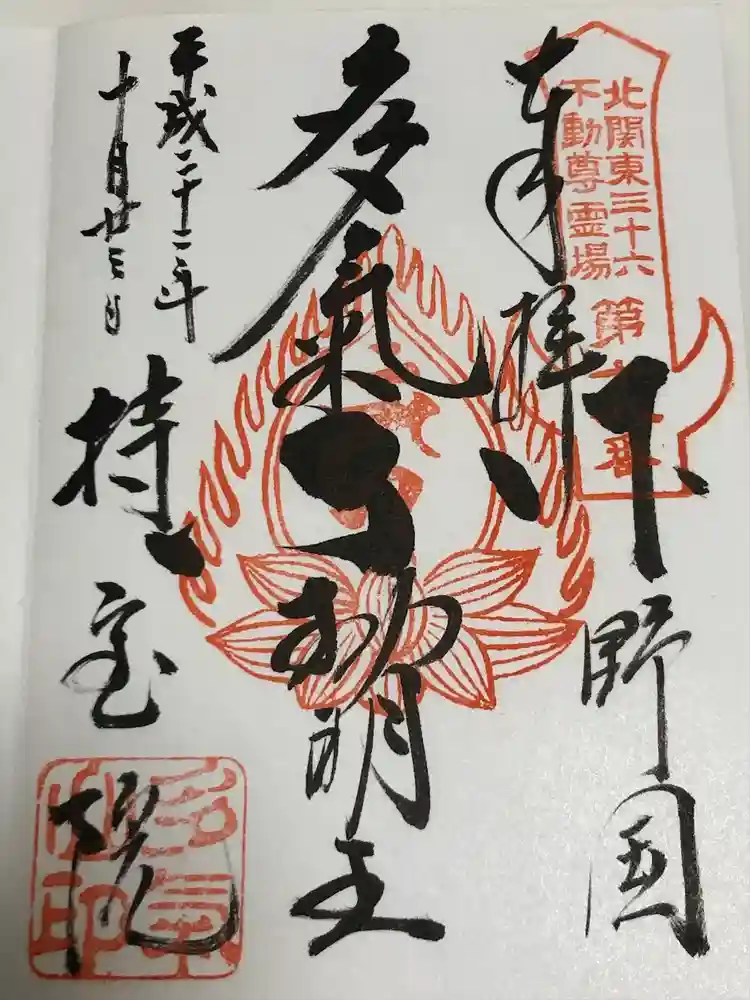 北關東三十六
不動尊霊場
第
番
奉拝
下野国
多氣不動明王
平成二十二年
十月廿三日
持宝院